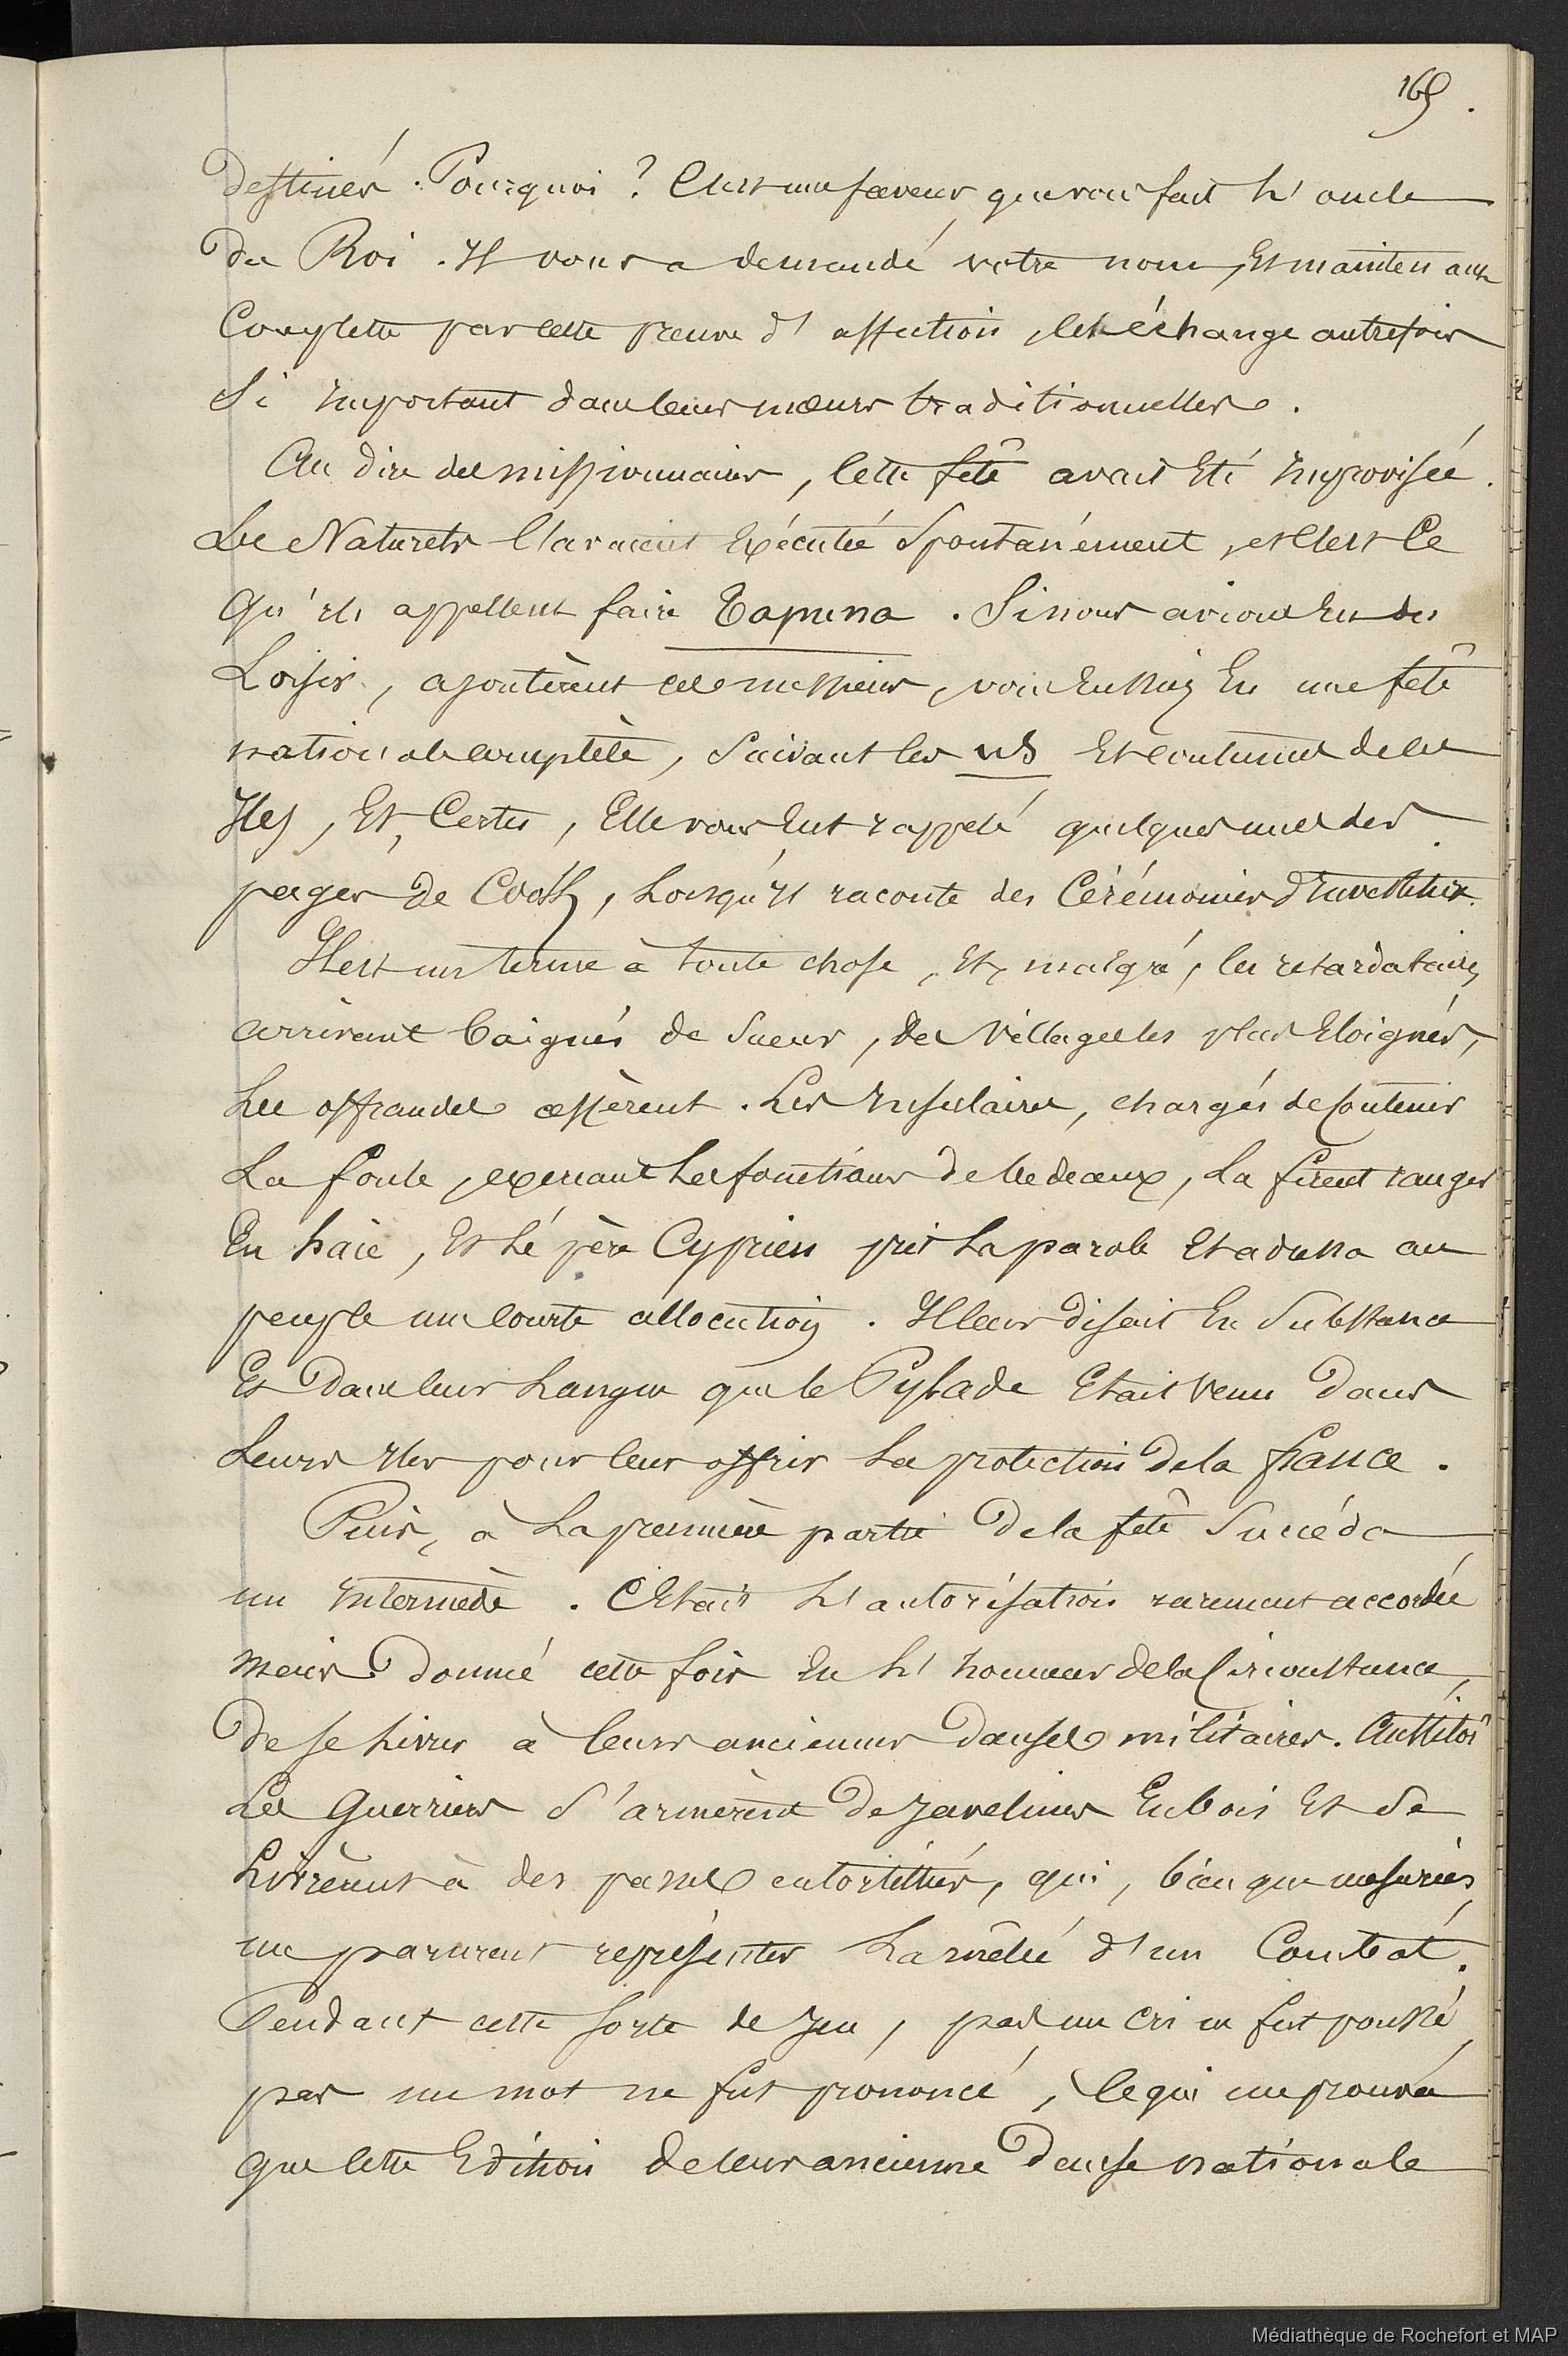 165.
destinés. Pourquoi ? C'est une faveur que vous fait l'oncle
du Roi. Il vous a demandé votre nom, et maintenant
complette par cette preuve d'affection, cet échange autrefois
si important dans leurs mœurs traditionnelles.
Au dire des missionnaires, cette fête avait été improvisée.
Les Naturels l'avaient exécutée spontanément, et c'est ce
qu'ils appellent faire Tapena. Si nous avions eu des
loisirs, ajoutèrent ces messieurs, vous eussiez eu une fête
nationale complète, suivant les us et coutumes de ces
îles, et, certes, elle vous eut rappelé quelques unes des
pages de Cook, lorsqu'il raconte des cérémonies d'investiture.
Il est un terme à toute chose, et, malgré, les retardataires
arrivant baignés de sueur, des villages les plus éloignés,
les offrandes cessèrent. Les insulaires, chargés de contenir
la foule, exerçant les fonctions de bedeaux, la firent ranger
en haie, et le père Cyprien prit la parole et adressa au
peuple une courte allocution. Il leur disait en substance
et dans leur langue que le Pylade était venu dans
leurs îles pour leur offrir la protection de la france.
Puis, à la première partie de la fête succéda
un intermède. C'était l'autorisation rarement accordée
mais donné cette fois en l'honneur de la circonstance,
de se livrer à leurs anciennes danses militaires. Aussitôt
les guerriers s'armèrent de javelines en bois et se
livrèrent à des passes entortillées, qui, bien que mesurées,
me parurent représenter la mêlée d'un combat.
Pendant cette sorte de jeu, pas un cri ne fut poussé,
pas un mot ne fut prononcé, ce qui me prouva
que cette édition de leur ancienne danse nationale
Médiathèque de Rochefort et MAP